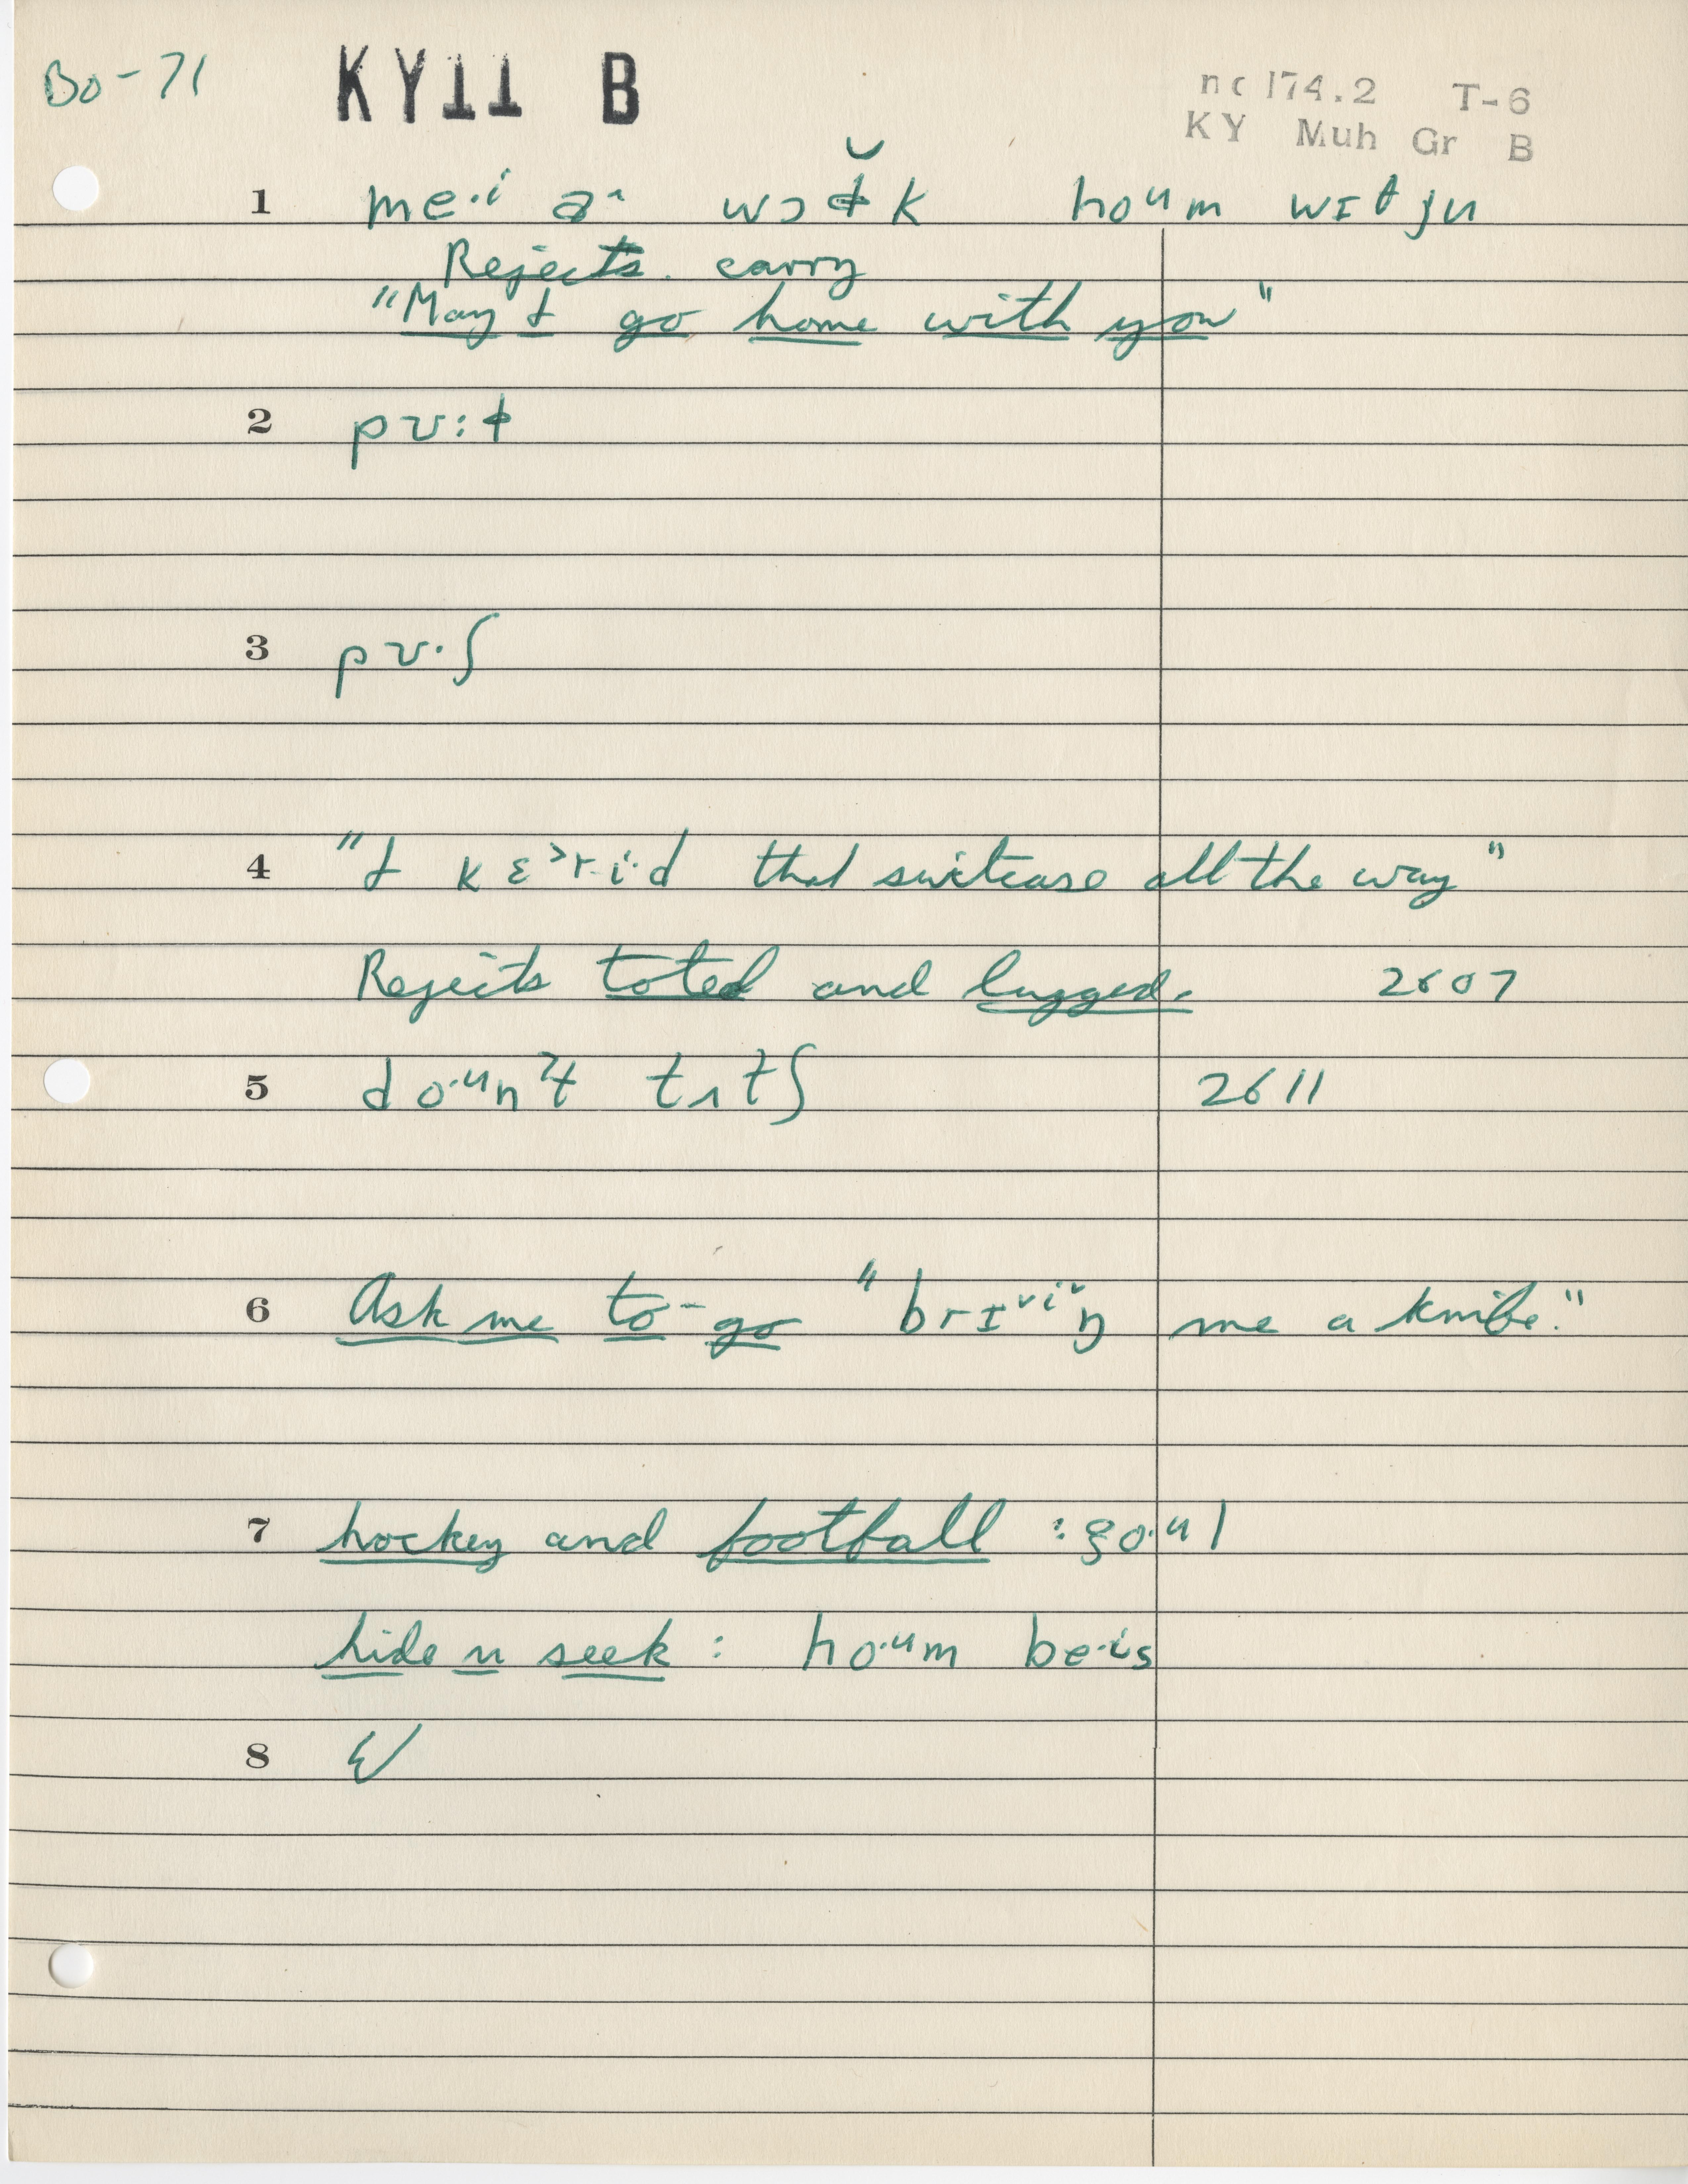 Bo-71 KY11 B nc 174.2 T-6
KY Muh Gr B
1 me·i a^ wɔɫk hoᵘm wɪθ ju
Rejects carry
"May I go home with you"
2 pʊ:ɫ
3 pʊ·ʃ
4 "I kɛ>r·i·d that suitcase all the way"
Rejects toted and lugged. 2607
5 do·ᵘnʔt tʌtʃ 2611
6 Ask me to-go "brɪ˅i˅ŋ me a knife."
7 hockey and football : go·ᵘl
hide n seek : ho·ᵘm be·is
8